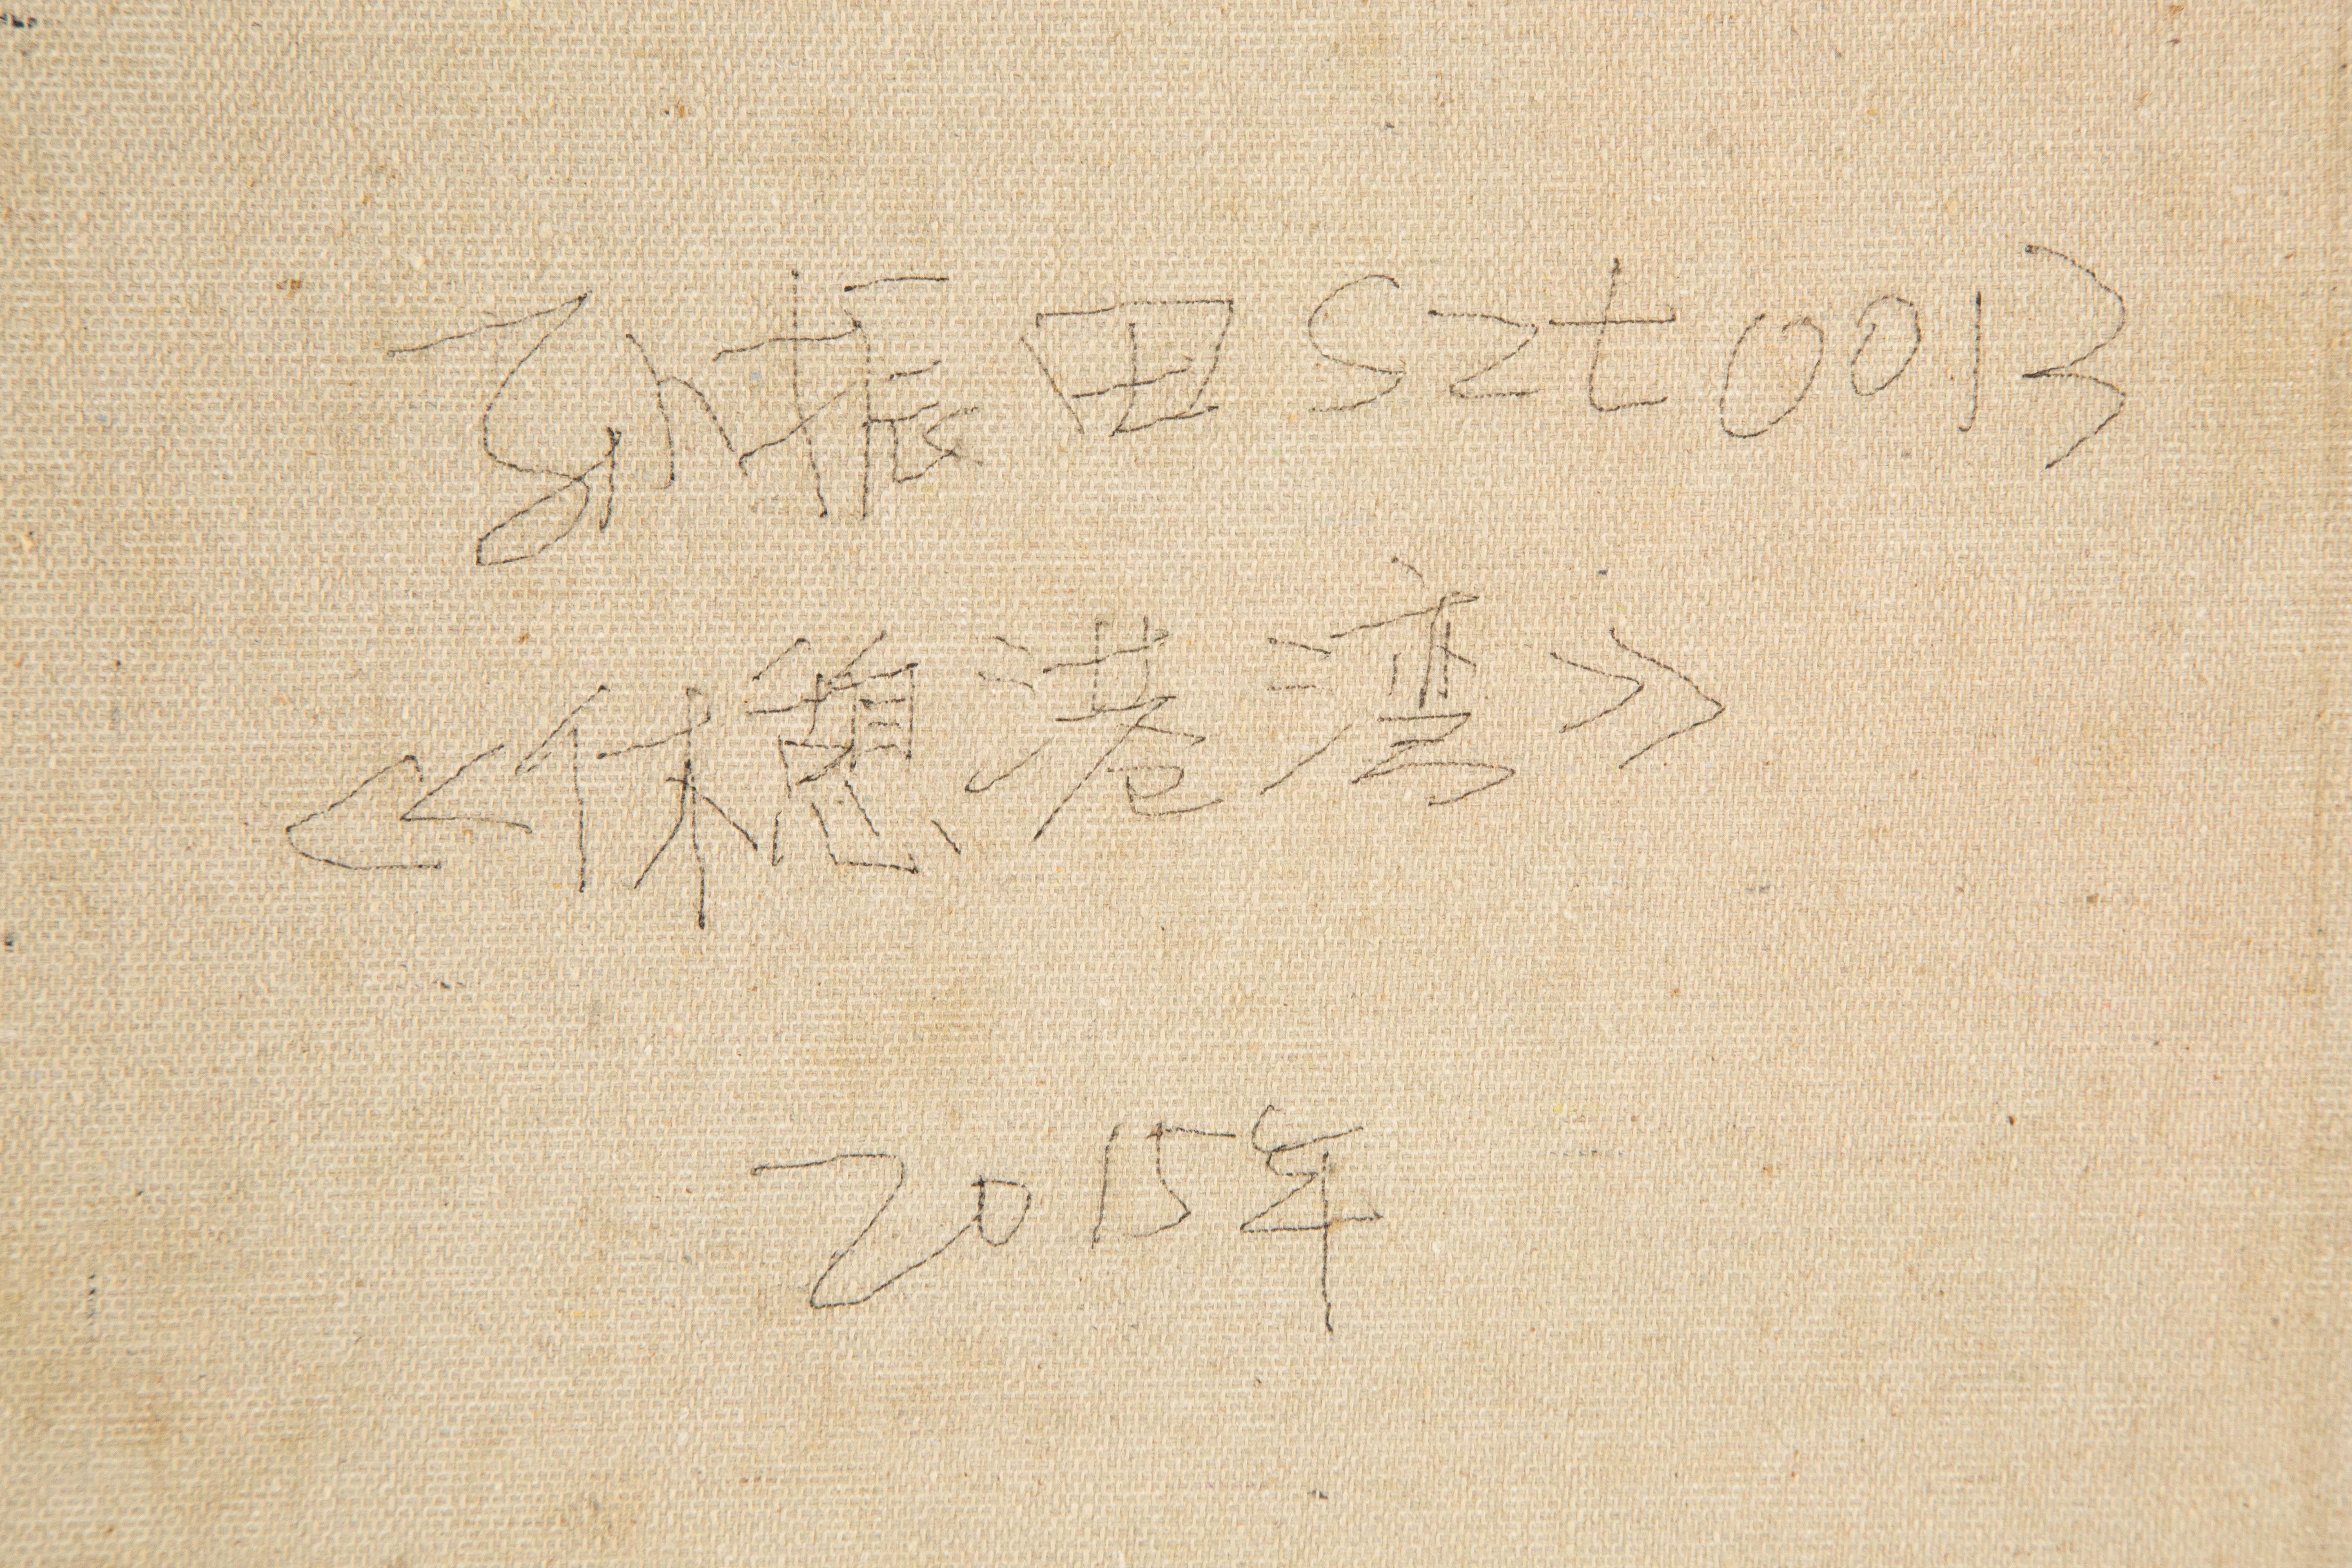 孙振田 Szt0013
《休憩港湾》
2015年